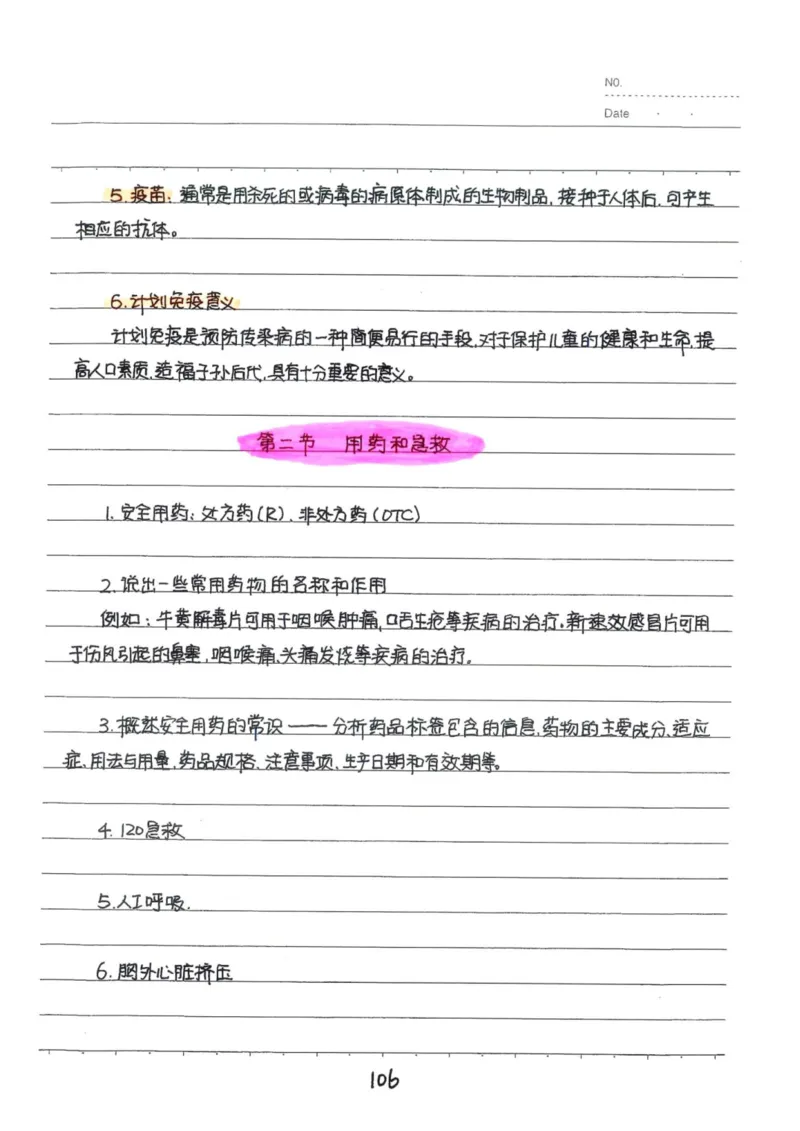 NO.
Date
5.疫苗：通常是用杀死的或病毒的病原体制成的生物制品,接种于人体后,可产生
相应的抗体。
6.计划免疫意义
计划免疫是预防传染病的一种简便易行的手段,对于保护儿童的健康和生命,提
高人口素质,造福子孙后代,具有十分重要的意义。
第二节 用药和急救
1.安全用药：处方药(R)、非处方药(OTC)
2.说出一些常用药物的名称和作用
例如：牛黄解毒片可用于咽喉肿痛,口舌生疮等疾病的治疗。新速效感冒片可用
于伤风引起的鼻塞,咽喉痛、头痛发烧等疾病的治疗。
3.概述安全用药的常识——分析药品标签包含的信息,药物的主要成分、适应
症、用法与用量、药品规格、注意事项、生产日期和有效期等。
4.120急救
5.人工呼吸.
6.胸外心脏挤压
106